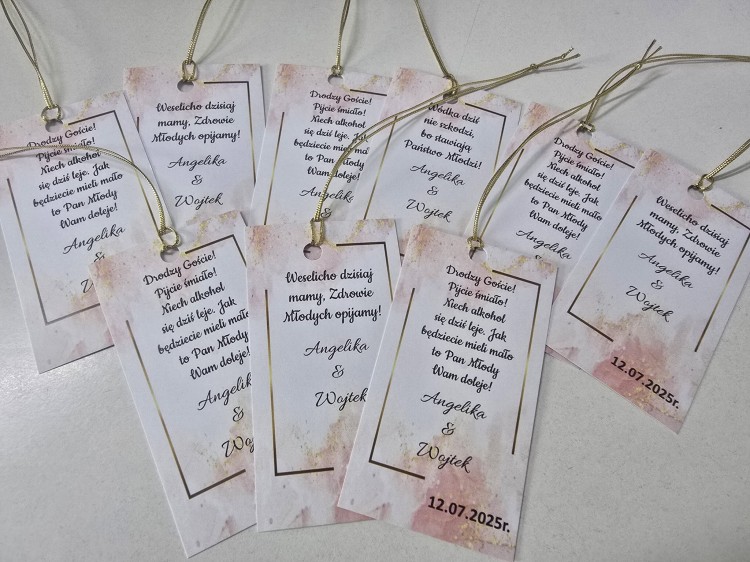 Drodzy Goście!
Pijcie śmiało!
Niech alkohol
się dziś leje. Jak
będziecie mieli mało
to Pan Młody
Wam doleje!
Angelika
&
Weselicho dzisiaj
mamy, Zdrowie
Młodych opijamy!
Angelika
&
Wojtek
Drodzy Goście!
Pijcie śmiało!
Niech alkohol
się dziś leje. Jak
będziecie mieli
to Pan
Wam
&
Wódka dziś
nie szkodzi,
bo stawiają
Państwo Młodzi!
Angelika
&
Wojtek
Drodzy Goście!
Pijcie śmiało!
Niech alkohol
się dziś leje. Jak
będziecie mieli mało
to Pan Młody
Wam doleje!
Angelika
&
Weselicho dzisiaj
mamy, Zdrowie
Młodych opijamy!
Angelika
&
Wojtek
12.07.2025r.
Drodzy Goście!
Pijcie śmiało!
Niech alkohol
się dziś leje. Jak
będziecie mieli mało
to Pan Młody
Wam doleje!
&
Weselicho dzisiaj
mamy, Zdrowie
Młodych opijamy!
Angelika
&
Wojtek
Drodzy Goście!
Pijcie śmiało!
Niech alkohol
się dziś leje. Jak
będziecie mieli mało
to Pan Młody
Wam doleje!
Angelika
&
Wojtek
12.07.2025r.